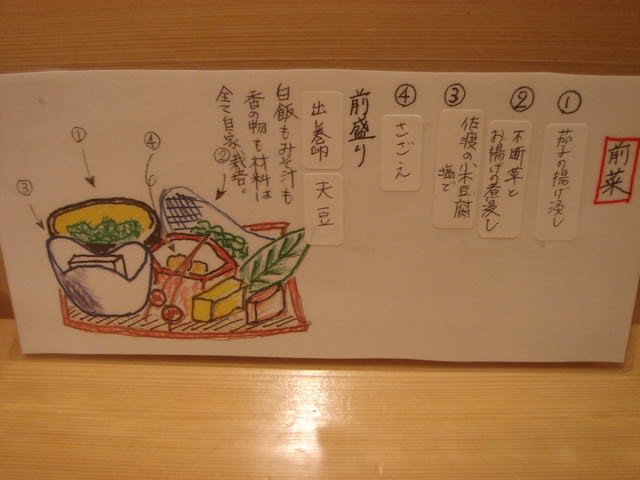 前菜
①
茄子の揚げ浸し
②
不断草と
お揚げの煮浸し
③
佐渡の小米豆腐
塩で
④
さざえ
前盛り
出し巻卵
天豆
白飯もみそ汁も
香の物も材料は
全て自家栽培。
①
④
②
③